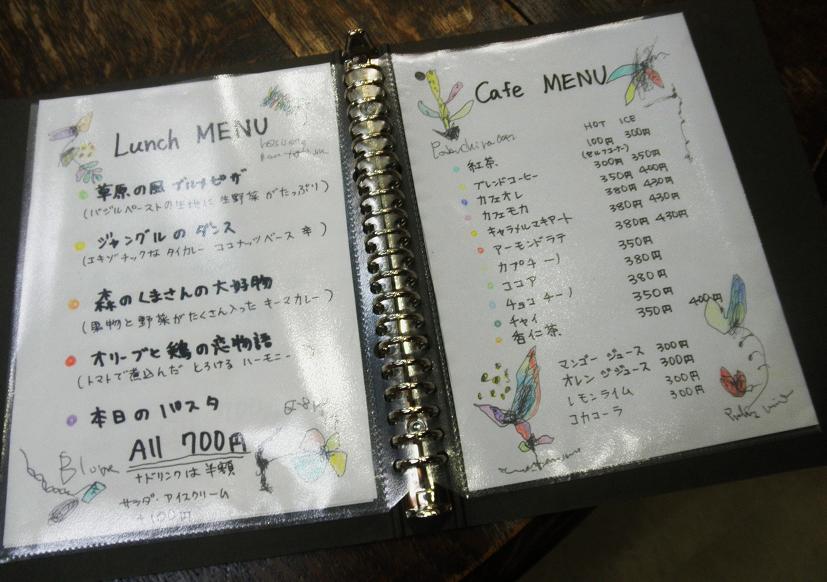 Lunch MENU
草原の風 ブルーナピザ
(バジルペーストの生地に生野菜がたっぷり)
ジャングルのダンス
(エキゾチックなタイカレー ココナッツベース 辛)
森のくまさんの大好物
(果物と野菜がたくさん入ったキーマカレー)
オリーブと鶏の恋物語
(トマトで煮込んだ とろける ハーモニー)
本日のパスタ
All 700円
+ドリンクは半額
サラダ・アイスクリーム
+100円
Cafe MENU
HOT ICE
紅茶 100円 300円
(セルフコーナー)
ブレンドコーヒー 300円 350円
カフェオレ 350円 400円
カフェモカ 380円 430円
キャラメルマキアート 380円 430円
アーモンドラテ 380円 430円
カプチーノ 350円
ココア 380円
チョコチーノ 380円
チャイ 350円 400円
杏仁茶 350円
マンゴージュース 300円
オレンジジュース 300円
レモンライム 300円
コカコーラ 300円